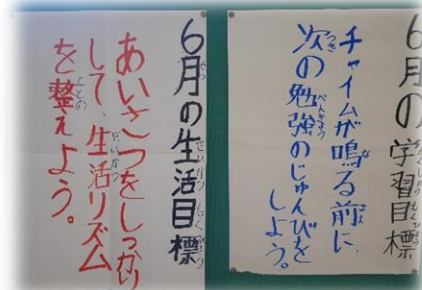 6月の学習目標
チャイムが鳴る前に
次の勉強のじゅんびを
しよう。
6月の生活目標
あいさつをしっかり
して、生活リズム
を整えよう。